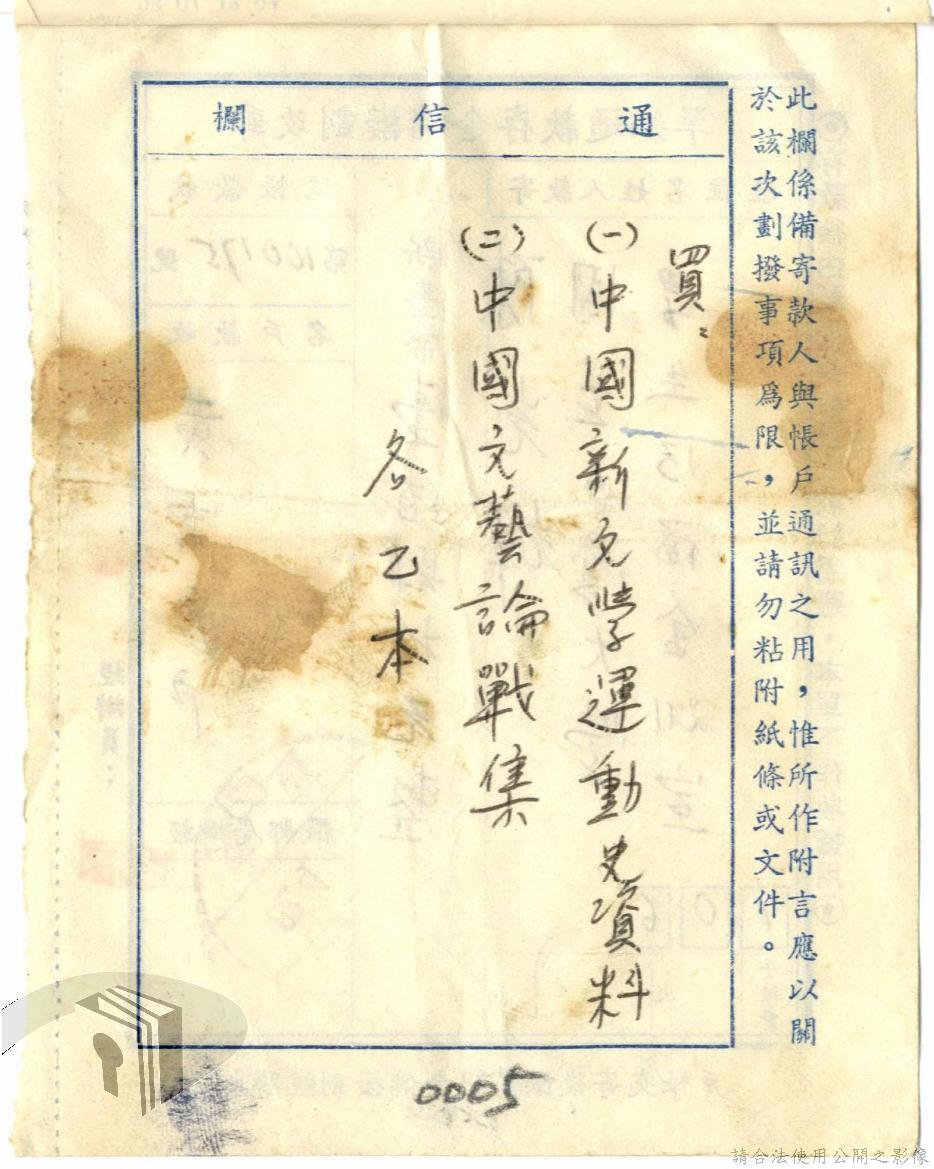 此欄係備寄款人與帳戶通訊之用，惟所作附言應以關
於該次劃撥事項爲限，並請勿粘附紙條或文件。
通信欄
買：
(一)中國新文學運動史資料
(二)中國文藝論戰集
各乙本
0005
請合法使用公開之影像